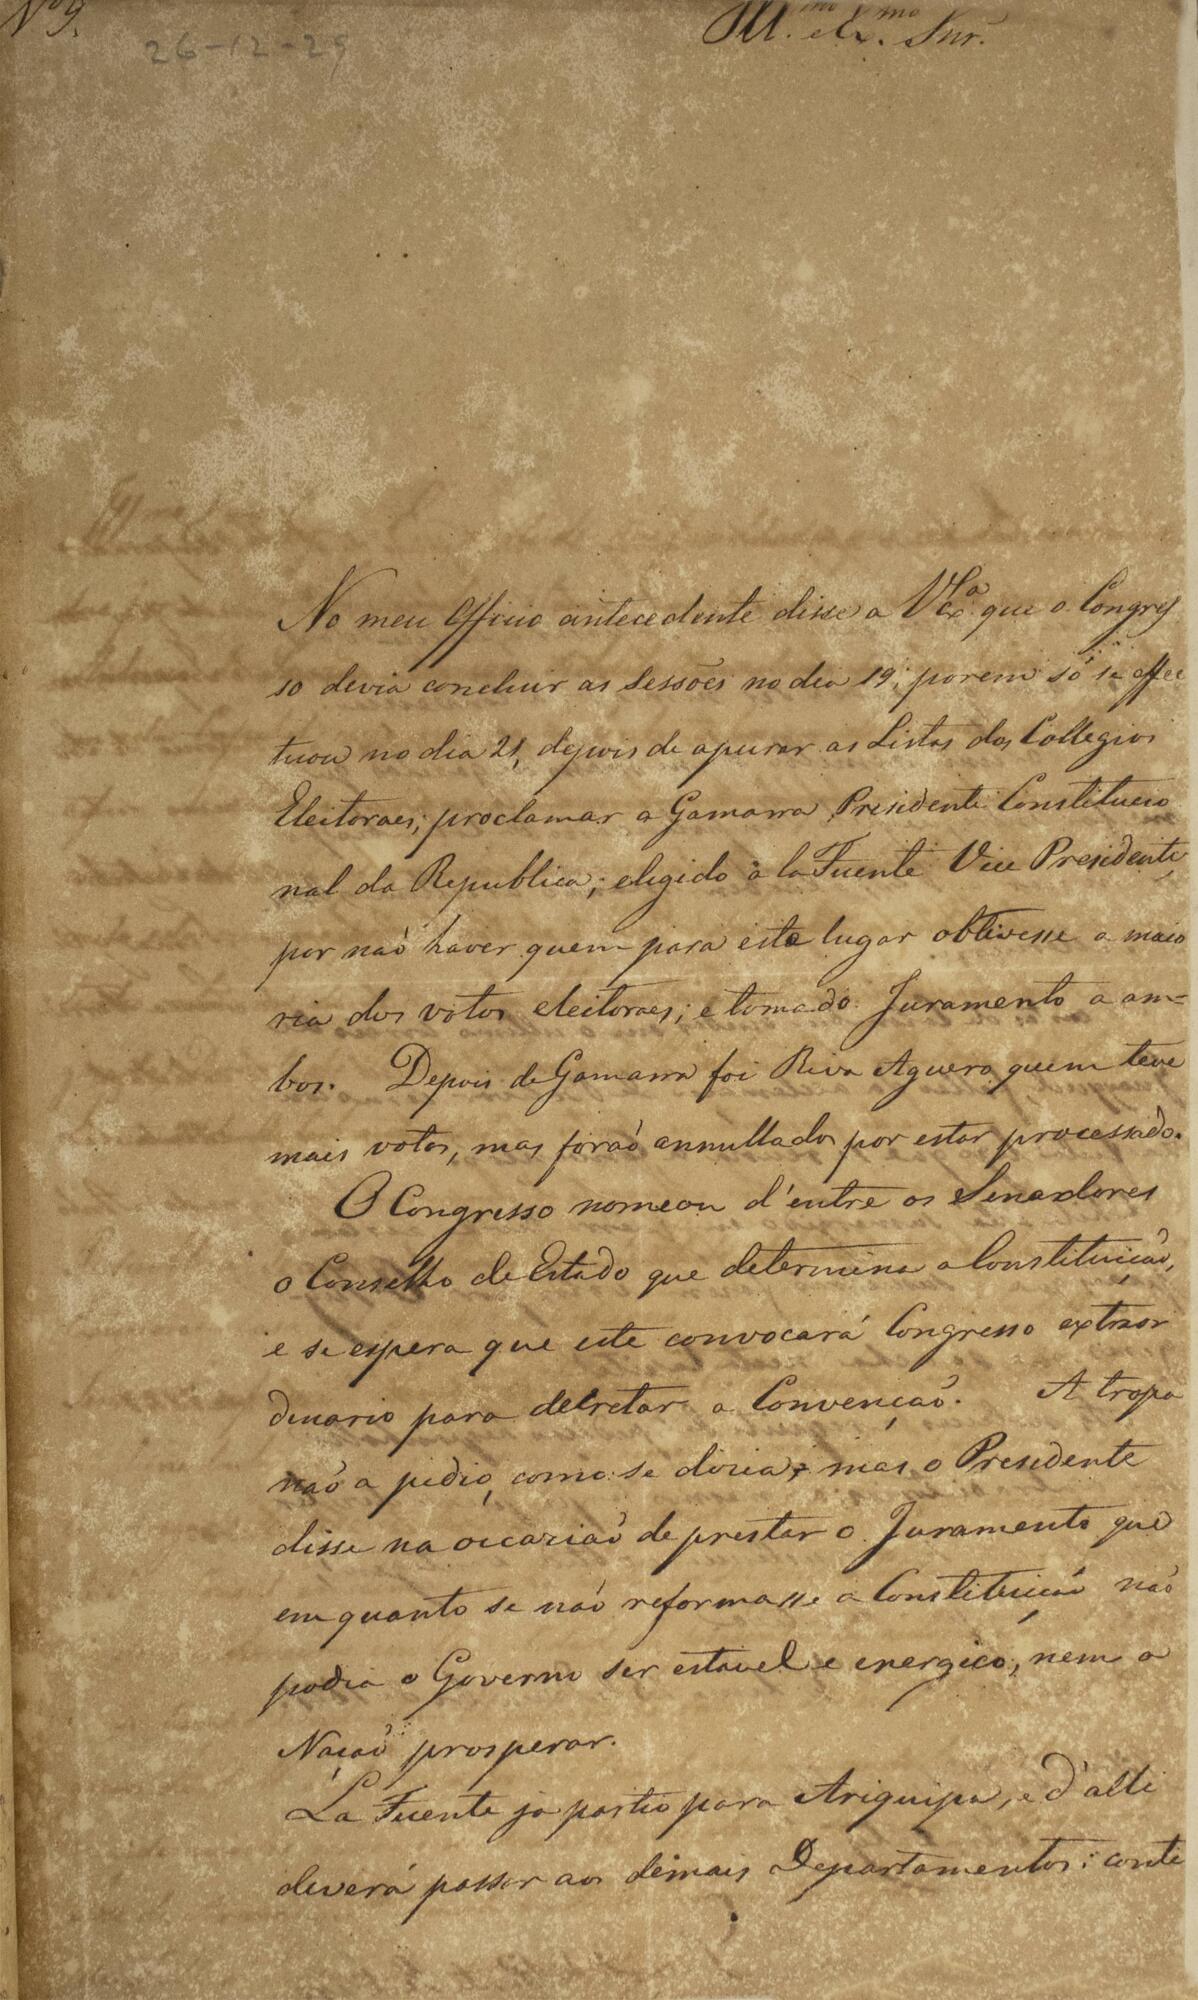 Nº 9.
26-12-29
Ill.mo e Ex.mo Snr.
No meu Officio antecedente disse a V.Exª que o Congres
so devia concluir as Sessões no dia 19; porem só se effec
tuou no dia 21, depois de apurar as Listas dos Collegios
Eleitoraes; proclamar a Gamarra Presidente Constitucio
nal da Republica; eligido á la Fuente Vice Presidente,
por naõ haver quem para este lugar obtivesse a maio
ria dos votos eleitoraes; e tomado Juramento a am=
bos. Depois de Gamarra foi Riva Aguero quem teve
mais votos, mas foraõ annullados por estar processado.
O Congresso nomeou d'entre os Senadores
o Conselho de Estado que determina a Constituiçaõ,
e se espera que este convocará Congresso extraor
dinario para decretar a Convençaõ. A tropa
naõ a pedio, como se dizia; mas o Presidente
disse na occaziaõ de prestar o Juramento que
em quanto se naõ reformasse a Constituiçaõ naõ
podia o Governo ser estavel e energico, nem a
Naçaõ prosperar.
La Fuente ja partio para Ariquipa, e d'alli
deverá passar aos demais Departamentos: conti